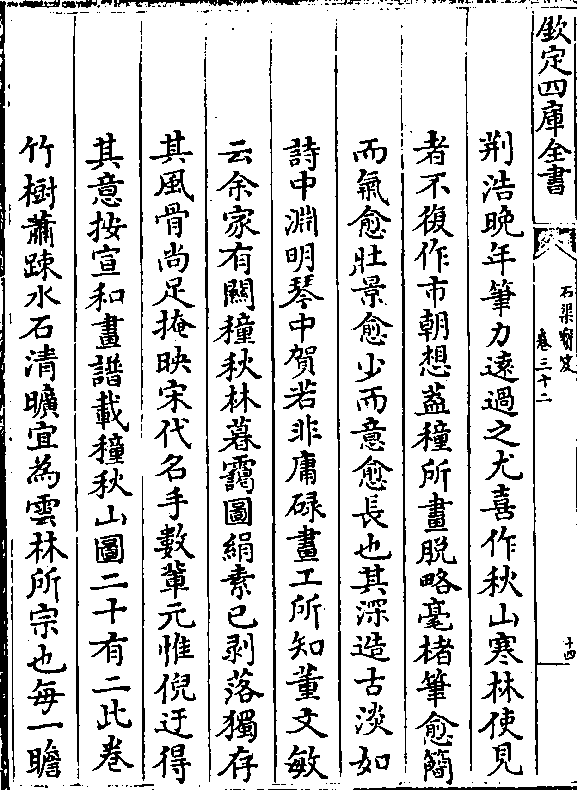 欽定四庫全書
石渠寶笈
卷三十二
十四
荆浩晚年筆力遠過之尤喜作秋山寒林使見
者不復作市朝想葢穜所畫脱略毫楮筆愈簡
而氣愈壯景愈少而意愈長也其深造古淡如
詩中淵明琴中賀若非庸碌畫工所知董文敏
云余家有關穜秋林暮靄圖絹素已剥落獨存
其風骨尚足掩映宋代名手數輩元惟倪迂得
其意按宣和畫譜載穜秋山圖二十有二此卷
竹樹蕭疎水石清曠宜為雲林所宗也每一瞻